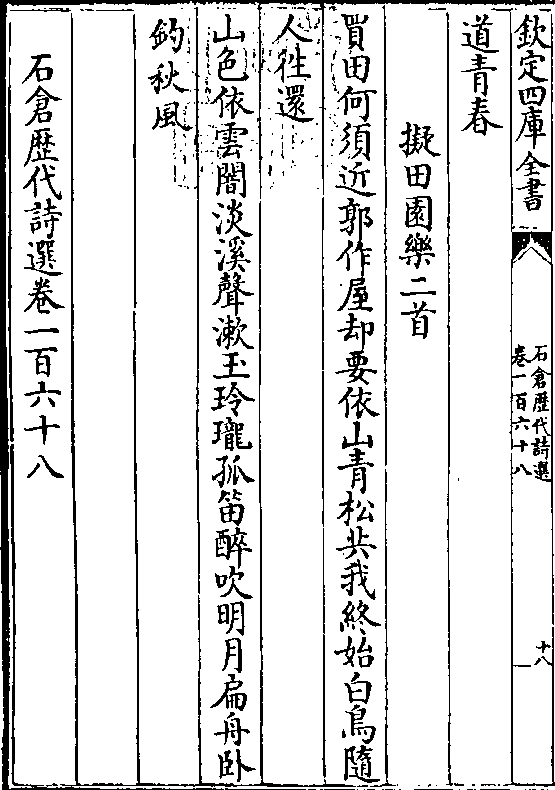 欽定四庫全書
石倉歷代詩選
卷一百六十八
十八
道青春
擬田園樂二首
買田何須近郭作屋却要依山青松共我終始白鳥隨
人徃還
山色依雲闇淡溪聲漱玉玲瓏孤笛醉吹明月扁舟卧
釣秋風
石倉歴代詩選卷一百六十八